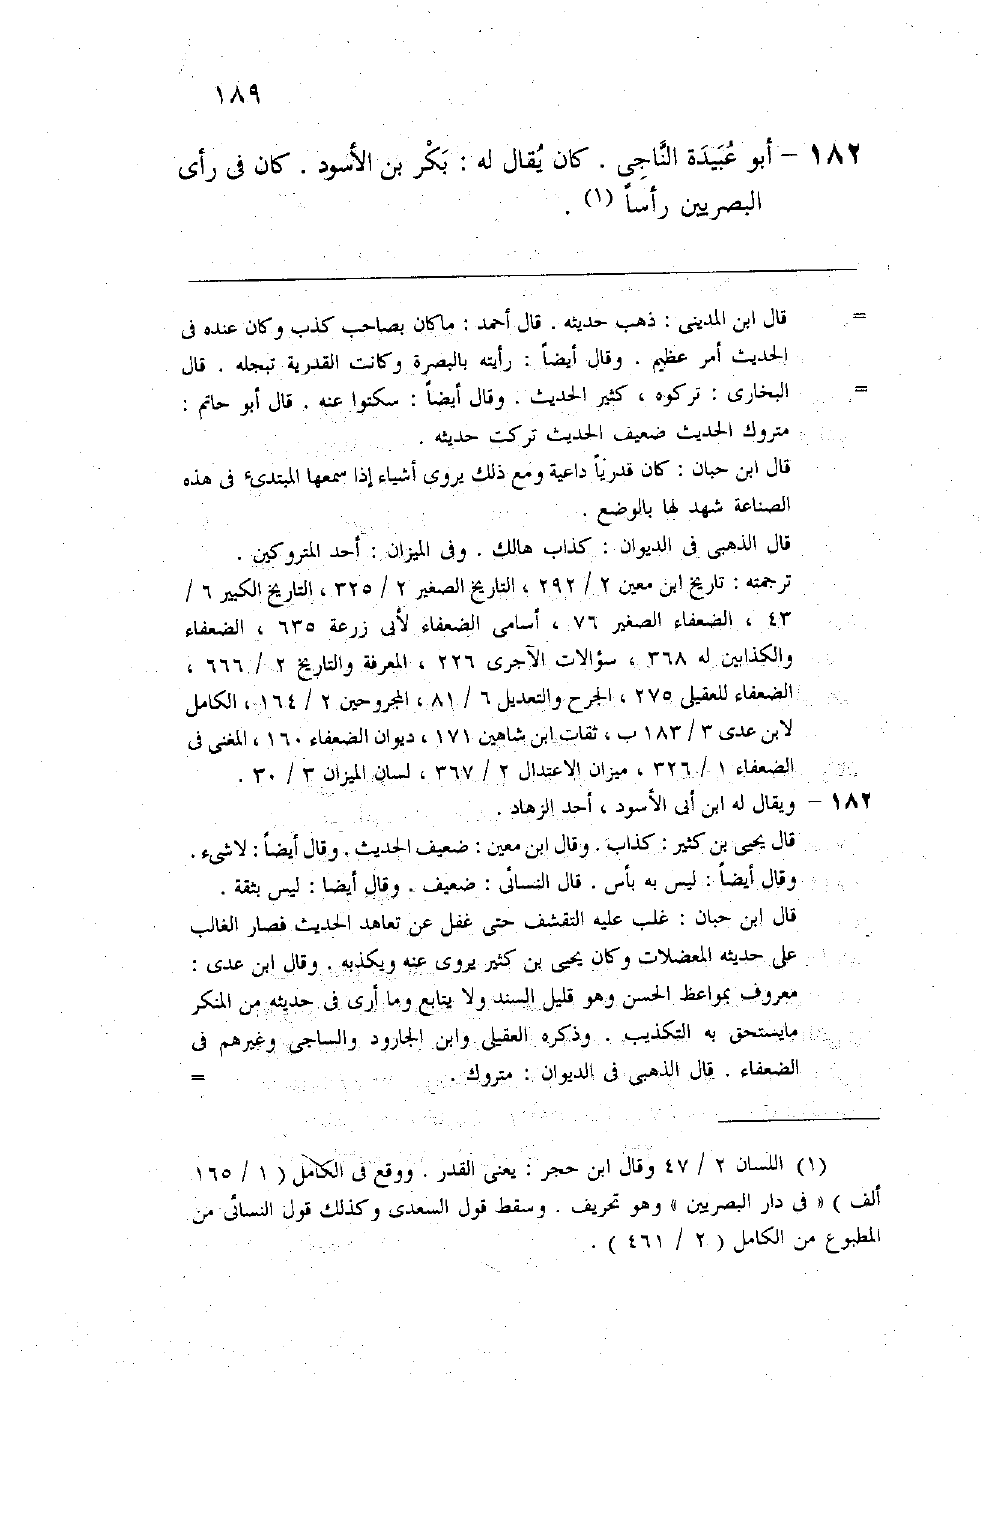 ١٨٩
١٨٢ – أبو عُبَيدَة النَّاجِى . كان يُقال له : بَكْر بن الأسود . كان فى رأى
البصريين رأساً (١) .
= قال ابن المدينى : ذهب حديثه . قال أحمد : ماكان بصاحب كذب وكان عنده فى
الحديث أمر عظيم . وقال أيضاً : رأيته بالبصرة وكانت القدرية تبجله . قال
= البخارى : تركوه ، كثير الحديث . وقال أيضاً : سكتوا عنه . قال أبو حاتم :
متروك الحديث ضعيف الحديث تركت حديثه .
قال ابن حبان : كان قدرياً داعية ومع ذلك يروى أشياء إذا سمعها المبتدئ فى هذه
الصناعة شهد لها بالوضع .
قال الذهبى فى الديوان : كذاب هالك . وفى الميزان : أحد المتروكين .
ترجمته : تاريخ ابن معين ٢ / ٢٩٢ ، التاريخ الصغير ٢ / ٣٢٥ ، التاريخ الكبير ٦ /
٤٣ ، الضعفاء الصغير ٧٦ ، أسامى الضعفاء لأبى زرعة ٦٣٥ ، الضعفاء
والكذابين له ٣٦٨ ، سؤالات الآجرى ٢٢٦ ، المعرفة والتاريخ ٢ / ٦٦٦ ،
الضعفاء للعقيلى ٢٧٥ ، الجرح والتعديل ٦ / ٨١ ، المجروحين ٢ / ١٦٤ ، الكامل
لابن عدى ٣ / ١٨٣ ب ، ثقات ابن شاهين ١٧١ ، ديوان الضعفاء ١٦٠ ، المغنى فى
الضعفاء ١ / ٣٢٦ ، ميزان الاعتدال ٢ / ٣٦٧ ، لسان الميزان ٣ / ٣٠ .
١٨٢ – ويقال له ابن أبى الأسود ، أحد الزهاد .
قال يحيى بن كثير : كذاب . وقال ابن معين : ضعيف الحديث . وقال أيضاً : لاشىء .
وقال أيضاً : ليس به بأس . قال النسائى : ضعيف . وقال أيضا : ليس بثقة .
قال ابن حبان : غلب عليه التقشف حتى غفل عن تعاهد الحديث فصار الغالب
على حديثه المعضلات وكان يحيى بن كثير يروى عنه ويكذبه . وقال ابن عدى :
معروف بمواعظ الحسن وهو قليل السند ولا يتابع وما أرى فى حديثه من المنكر
مايستحق به التكذيب . وذكره العقيلى وابن الجارود والساجى وغيرهم فى
الضعفاء . قال الذهبى فى الديوان : متروك . =
(١) اللسان ٢ / ٤٧ وقال ابن حجر : يعنى القدر . ووقع فى الكامل ( ١ / ١٦٥
ألف ) « فى دار البصريين » وهو تحريف . وسقط قول السعدى وكذلك قول النسائى من
المطبوع من الكامل ( ٢ / ٤٦١ ) .